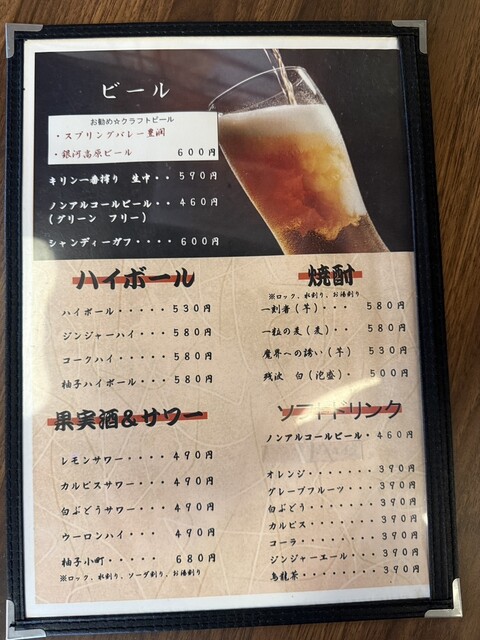 ビール
お勧め☆クラフトビール
・スプリングバレー豊潤
・銀河高原ビール 600円
キリン一番搾り 生中・・590円
ノンアルコールビール・・460円
(グリーン フリー)
シャンディーガフ・・・・600円
ハイボール
ハイボール・・・・・530円
ジンジャーハイ・・・・580円
コークハイ・・・・・580円
柚子ハイボール・・・・580円
焼酎
※ロック、水割り、お湯割り
一刻者(芋)・・・580円
一粒の麦(麦)・・・580円
魔界への誘い(芋) 530円
残波 白(泡盛)・・500円
果実酒&サワー
レモンサワー・・・・・490円
カルピスサワー・・・・490円
白ぶどうサワー・・・・490円
ウーロンハイ・・・・490円
柚子小町・・・・・680円
※ロック、水割り、ソーダ割り、お湯割り
ソフトドリンク
ノンアルコールビール・460円
オレンジ・・・・・・・390円
グレープフルーツ・・・390円
白ぶどう・・・・・・・390円
カルピス・・・・・・・390円
コーラ・・・・・・・・390円
ジンジャーエール・・・・390円
烏龍茶・・・・・・・・390円